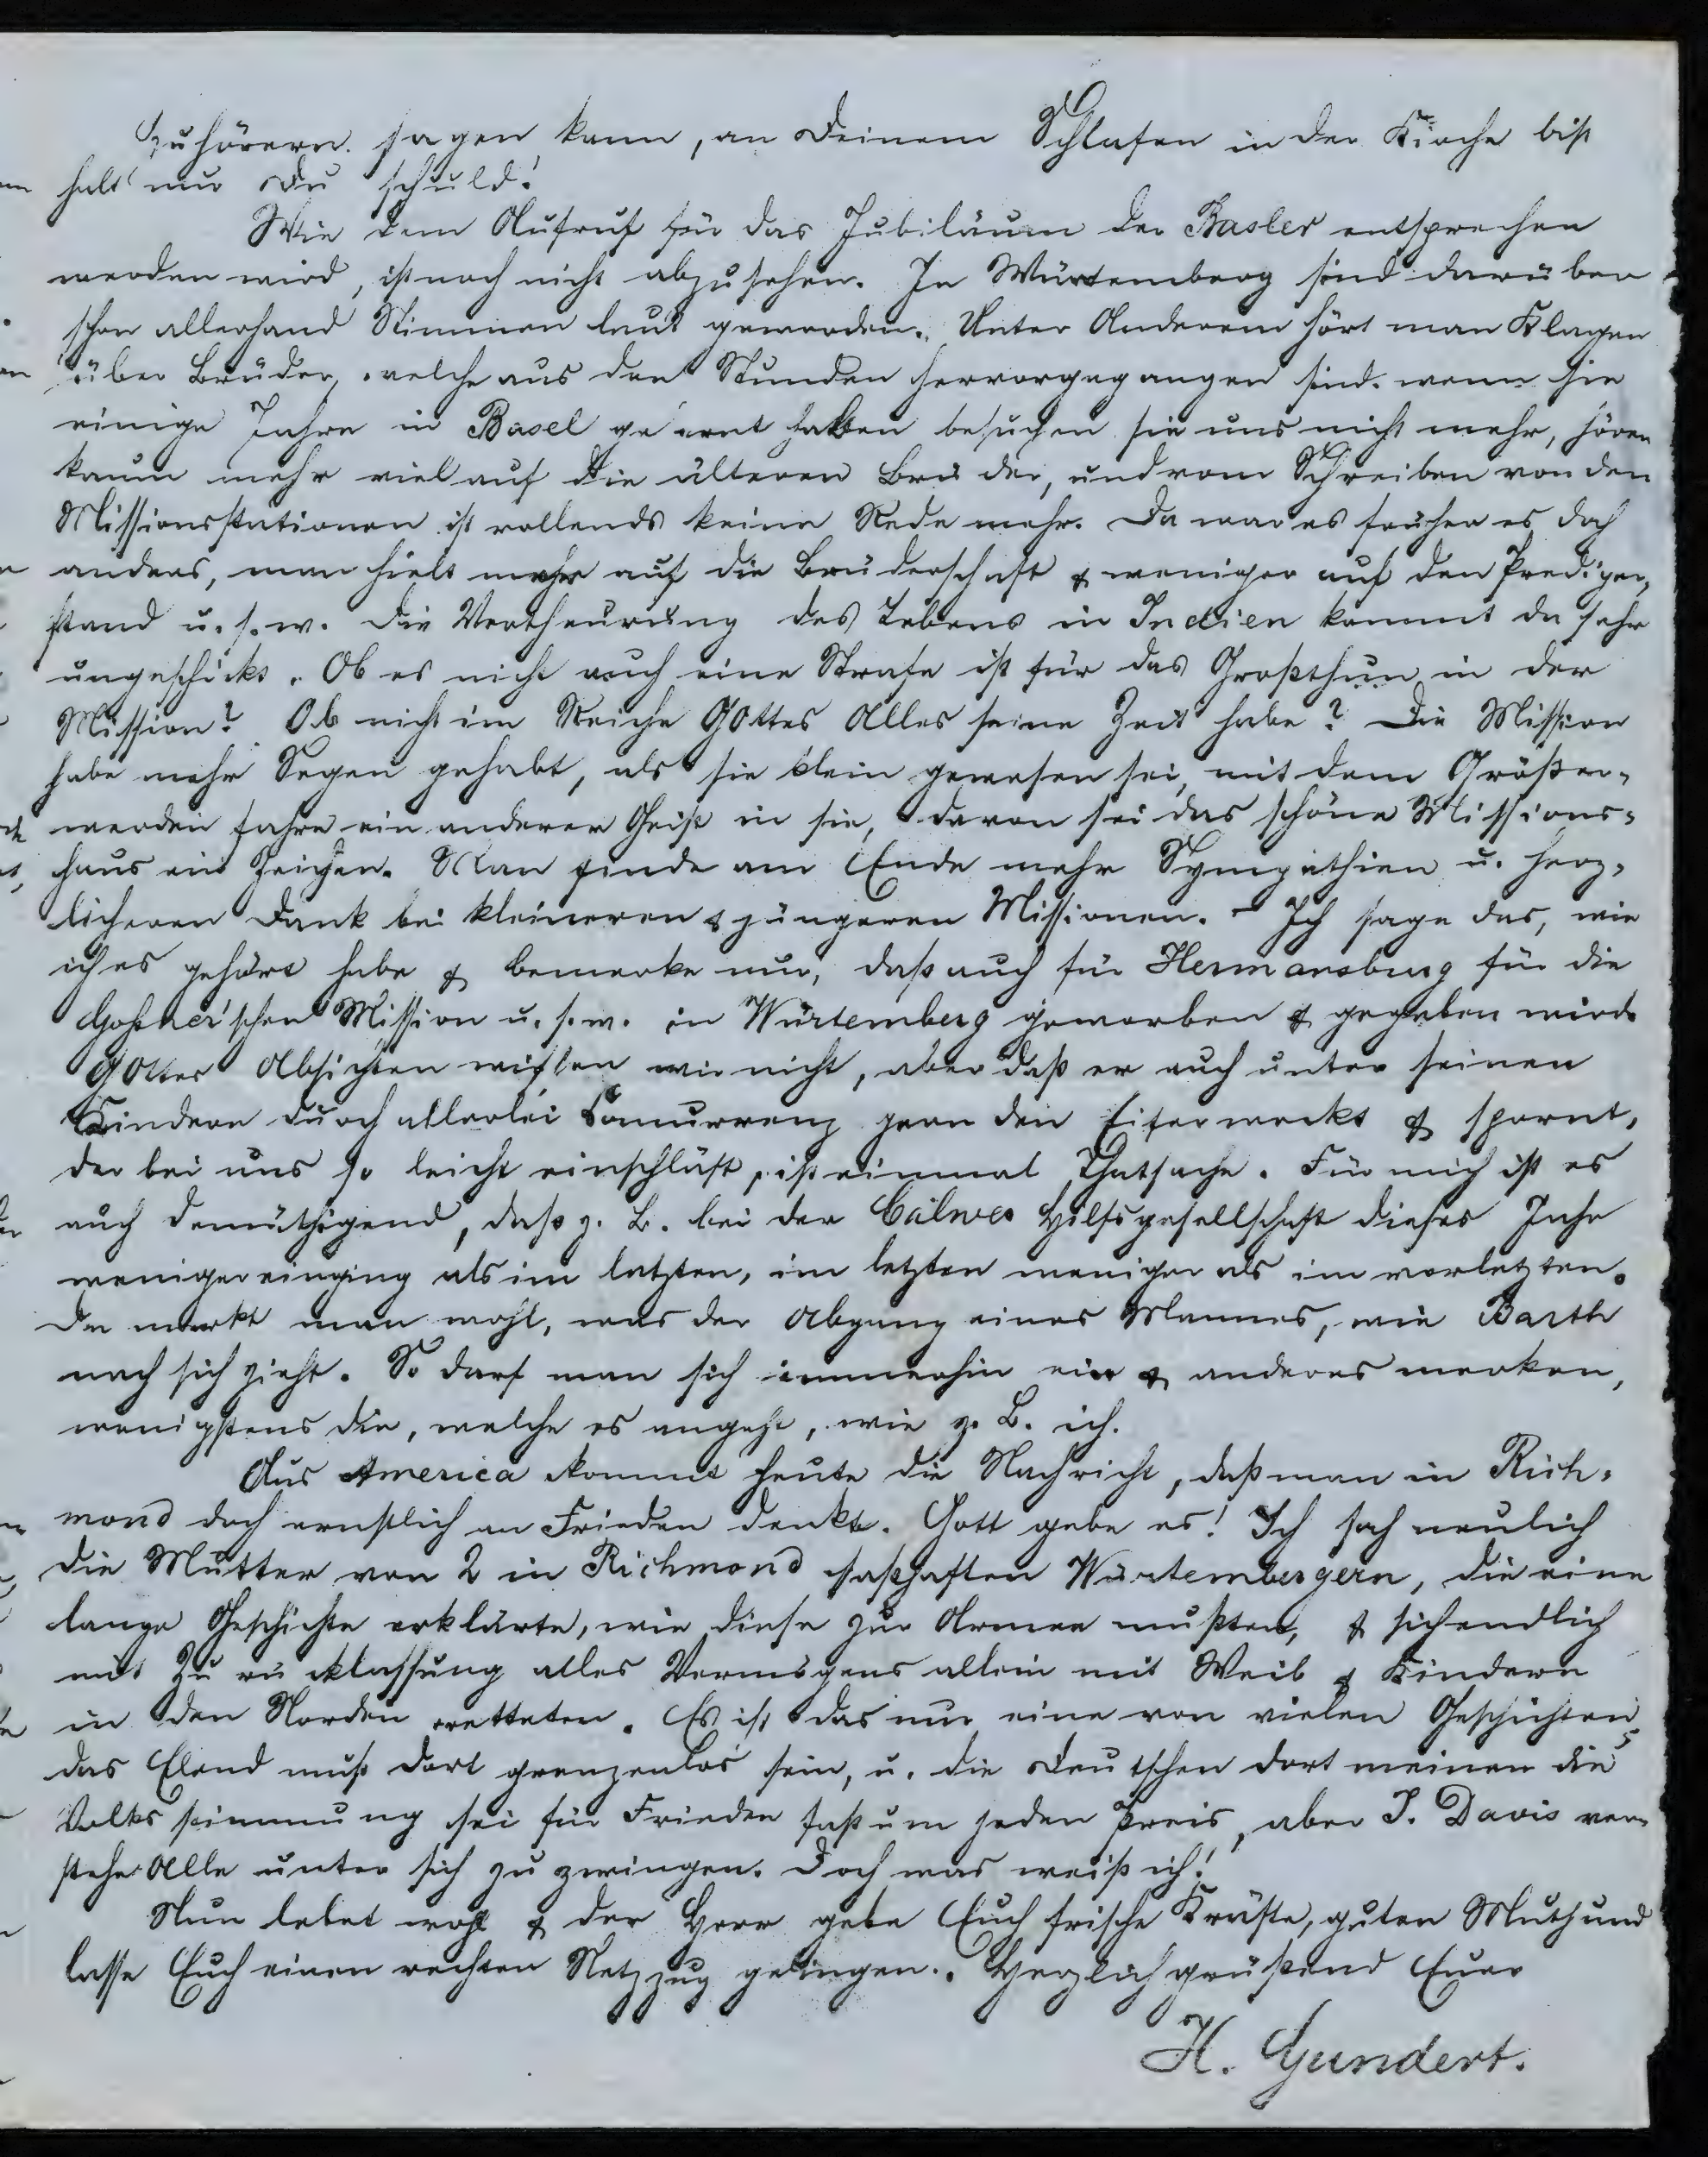 Zuhörern sagen kann, an Deinem Schlafen in der Kirche bist
halt nur Du schuld!
Wie dem Aufruf für das Jubiläum der Basler entsprechen
werden wird, ist noch nicht abzusehen. In Würtemberg sind darüber
schon allerhand Stimmen laut geworden. Unter Anderem hört man Klagen
über Brüder, welche aus den Stunden hervorgegangen sind. wenn sie
einige Jahre in Basel gelernt hatten besuchen sie uns nicht mehr, hören
kaum mehr viel auf die älteren Brüder, und vom Schreiben von den
Missionsstationen ist vollends keine Rede mehr. Da war es früher es doch
anders, man hielt mehr auf die Brüderschaft & weniger auf den Prediger-
stand u. s. w. Die Vertheurung des Lebens in Indien kommt da sehr
ungeschickt. Ob es nicht auch eine Strafe ist für das Großthun in der
Mission? Ob nicht im Reiche GOttes Alles seine Zeit habe? Die Mission
habe mehr Segen gehabt, als sie klein gewesen sei, mit dem Größer-
werden fahre ein anderer Geist in sie, davon sei das schöne Missions-
haus ein Zeichen. Man finde am Ende mehr Sympathien u. herz-
licheren Dank bei kleineren & jüngeren Missionen. - Ich sage das, wie
ich es gehört habe & bemerke nur, daß auch für Hermansburg für die
Goßner'schen Mission u. s. w. in Würtemberg geworben & gegeben wird.
GOttes Absichten wissen wir nicht, aber daß er auch unter seinen
Kindern durch allerlei Concurrenz gern den Eifer weckt & spornt,
der bei uns so leicht einschläft, ist einmal Thatsache. Für mich ist es
auch demüthigend, daß z. B. bei der Calwer Hilfsgesellschaft dieses Jahr
weniger einging als im letzten, im letzten weniger als im vorletzten.
Da merkt man wohl, was der Abgang eines Mannes, wie Barth
nach sich zieht. So darf man sich immerhin ein & anderes merken,
wenigstens die, welche es angeht, wie z. B. ich.
Aus America kommt heute die Nachricht, daß man in Rich-
mond doch ernstlich an Frieden denkt. Gott gebe es! Ich sah neulich
die Mutter von 2 in Richmond seßhaften Würtembergern, die eine
lange Geschichte erklärte, wie diese zur Armee mußten, & sich endlich
mit Zurücklassung alles Vermögens allein mit Weib & Kindern
in den Norden retteten. Es ist das nur eine von vielen Geschichten,
das Elend muß dort grenzenlos sein, u. die Deutschen dort meinen die
Volksstimmung sei für Frieden fast um jeden Preis, aber J. Davis ver-
stehe Alle unter sich zu zwingen. Doch was weiß ich!
Nun lebet wohl & der Herr gebe Euch frische Kräfte, guten Muth und
lasse Euch einen rechten Netzzug gelingen. Herzlich grüßend Euer
H. Gundert.